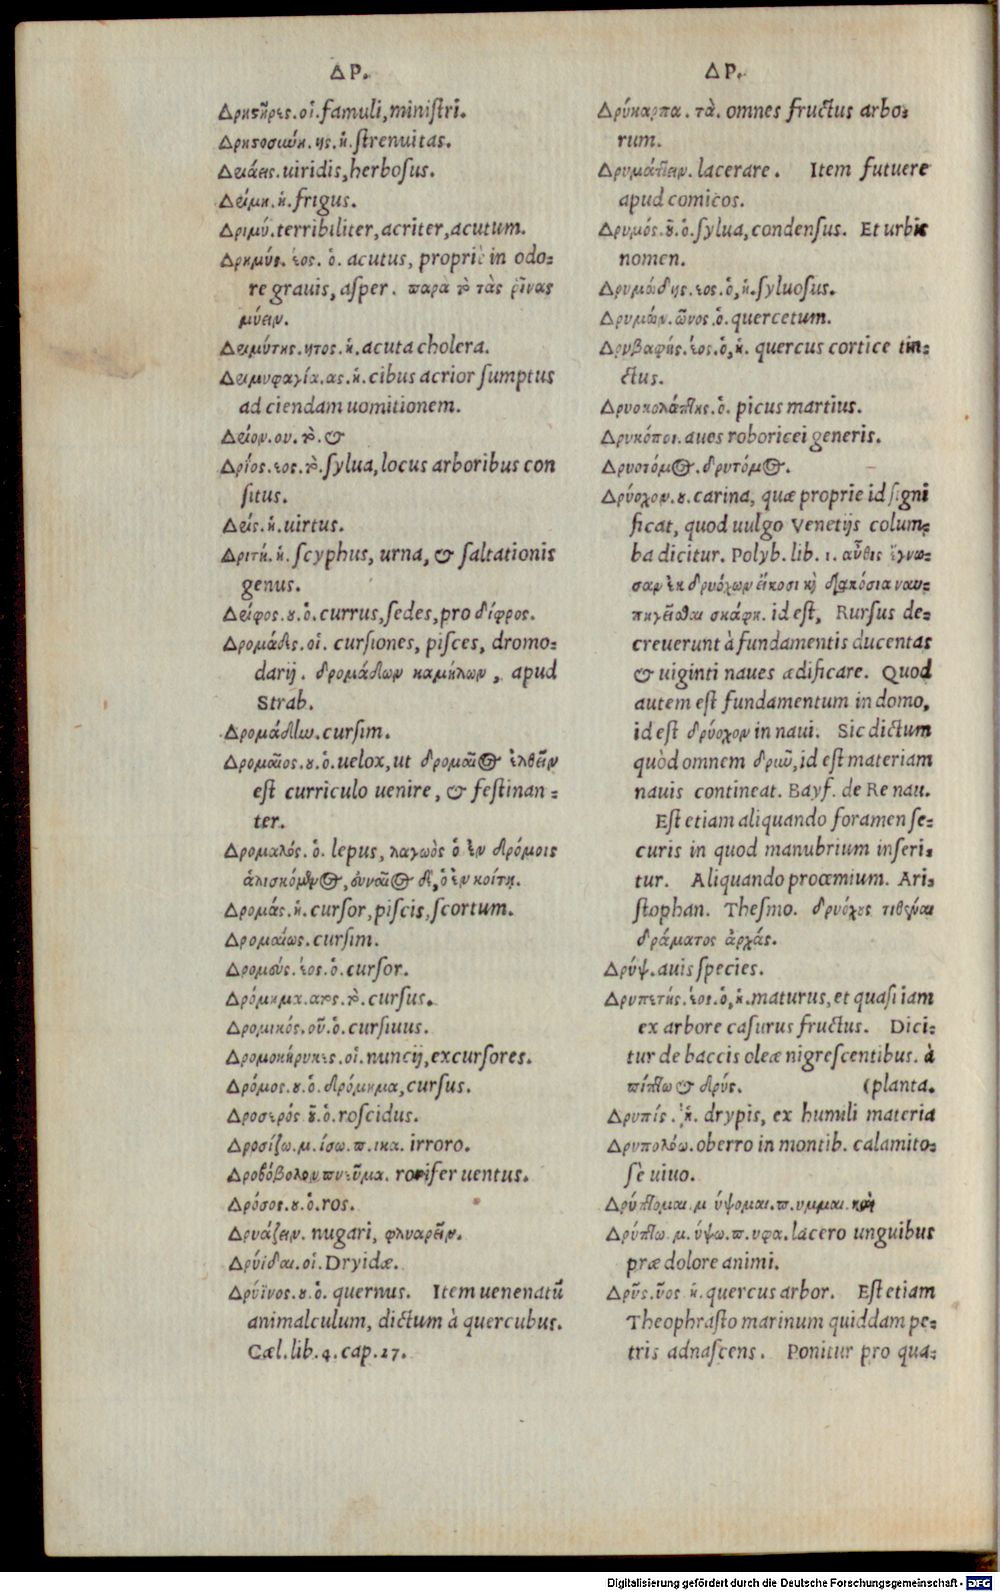 ΔΡ.
Δρηστῆρες. οἱ. famuli, miniſtri.
Δρηστοσύνη. ης. ἡ. ſtrenuitas.
Δριάεις. uiridis, herboſus.
Δρίμη. ἡ. frigus.
Δριμύ. terribiliter, acriter, acutum.
Δριμύς. έος. ὁ. acutus, propriè in odo-
re grauis, aſper. παρὰ τὸ τὰς ῥῖνας
μύειν.
Δριμύτης. ητος. ἡ. acuta cholera.
Δριμυφαγία. ας. ἡ. cibus acrior ſumptus
ad ciendam uomitionem.
Δρίον. ου. τὸ. &
Δρίος. εος. τὸ. ſylua, locus arboribus con
ſitus.
Δρίς. ἡ. uirtus.
Δριτή. ἡ. ſcyphus, urna, & ſaltationis
genus.
Δρίφος. ου. ὁ. currus, ſedes, pro δίφρος.
Δρομάδες. οἱ. curſiones, piſces, dromo-
darij. δρομάδων καμήλων, apud
Strab.
Δρομάδην. curſim.
Δρομαῖος. ου. ὁ. uelox, ut δρομαῖος ἐλθεῖν
eſt curriculo uenire, & feſtinan-
ter.
Δρομαλός. ὁ. lepus, λαγωὸς ὁ ἐν δρόμοις
ἁλισκόμενος, εὐναῖος δὲ, ὁ ἐν κοίτῃ.
Δρομάς. ἡ. curſor, piſcis, ſcortum.
Δρομαίως. curſim.
Δρομεύς. έος. ὁ. curſor.
Δρόμημα. ατος. τὸ. curſus.
Δρομικός. οῦ. ὁ. curſiuus.
Δρομοκήρυκες. οἱ. nuncij, excurſores.
Δρόμος. ου. ὁ. δρόμημα, curſus.
Δροσερός οῦ. ὁ. roſcidus.
Δροσίζω. μ. ίσω. π. ικα. irroro.
Δροσόβολον πνεῦμα. rorifer uentus.
Δρόσος. ου. ὁ. ros.
Δρυάζειν. nugari, φλυαρεῖν.
Δρύιδαι. οἱ. Dryidæ.
Δρύϊνος. ου. ὁ. quernus. Item uenenatũ
animalculum, dictum à quercubus.
Cæl. lib. 4. cap. 27.
ΔΡ.
Δρύκαρπα. τὰ. omnes fructus arbo-
rum.
Δρυμάττειν. lacerare. Item futuere
apud comicos.
Δρυμός. οῦ. ὁ. ſylua, condenſus. Et urbis
nomen.
Δρυμώδης. εος. ὁ, ἡ. ſyluoſus.
Δρυμών. ῶνος. ὁ. quercetum.
Δρυβαφής. έος. ὁ, ἡ. quercus cortice tin-
ctus.
Δρυοκολάπτης. ὁ. picus martius.
Δρυκόποι. aues roboricei generis.
Δρυοτόμος. δρυτόμος.
Δρύοχον. ου. carina, quæ proprie id ſigni
ficat, quod uulgo Venetijs colum-
ba dicitur. Polyb. lib. 1. αὖθις ἔγνω-
σαν ἐκ δρυόχων εἴκοσι καὶ διακόσια ναυ-
πηγεῖσθαι σκάφη. id eſt, Rurſus de-
creuerunt à fundamentis ducentas
& uiginti naues ædificare. Quod
autem eſt fundamentum in domo,
id eſt δρύοχον in naui. Sic dictum
quòd omnem δρῦν, id eſt materiam
nauis contineat. Bayf. de Re nau.
Eſt etiam aliquando foramen ſe-
curis in quod manubrium inſeri-
tur. Aliquando proœmium. Ari-
ſtophan. Theſmo. δρυόχους τιθέναι
δράματος ἀρχάς.
Δρύψ. auis ſpecies.
Δρυπετής. έος. ὁ, ἡ. maturus, et quaſi iam
ex arbore caſurus fructus. Dici-
tur de baccis oleæ nigreſcentibus. à
πίπτω & δρύς. (planta.
Δρυπίς. ἡ. drypis, ex humili materia
Δρυπολόω. oberro in montib. calamito-
ſè uiuo.
Δρύπτομαι. μ ύψομαι. π. υμμαι. καὶ
Δρύπτω. μ. ύψω. π. υφα. lacero unguibus
præ dolore animi.
Δρῦς. ῦος ἡ. quercus arbor. Eſt etiam
Theophraſto marinum quiddam pe-
tris adnaſcens. Ponitur pro qua-
Digitalisierung gefördert durch die Deutsche Forschungsgemeinschaft - DFG